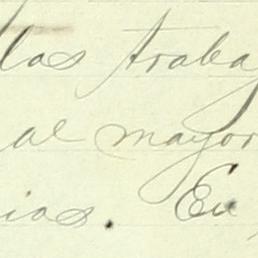 las traba
al mayor
ias. En